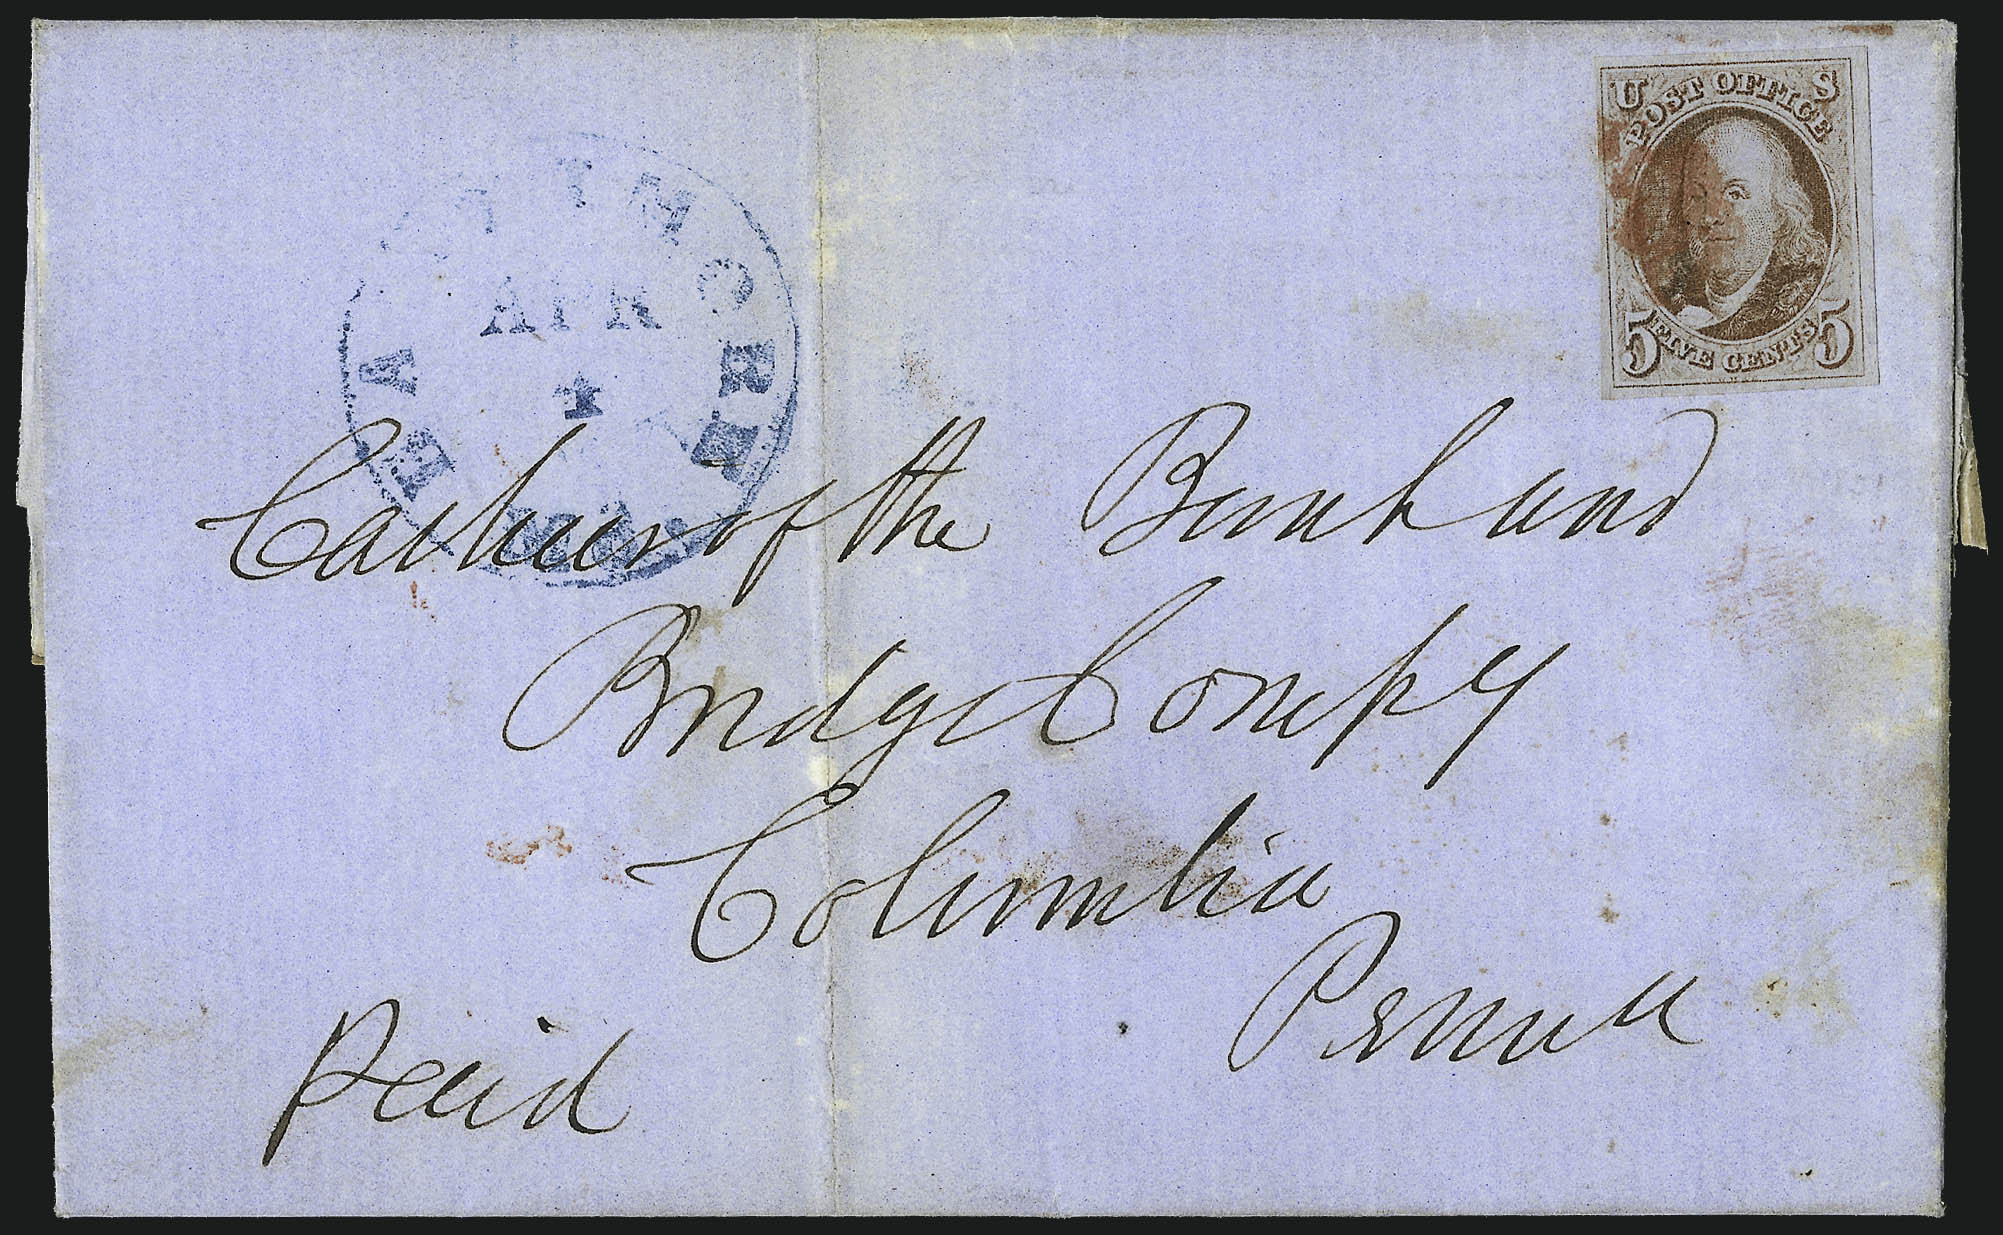 U S
POST OFFICE
5 FIVE CENTS 5
APR
Cashier of the Bank and
Bridge Compy
Columbia
Penna
Paid